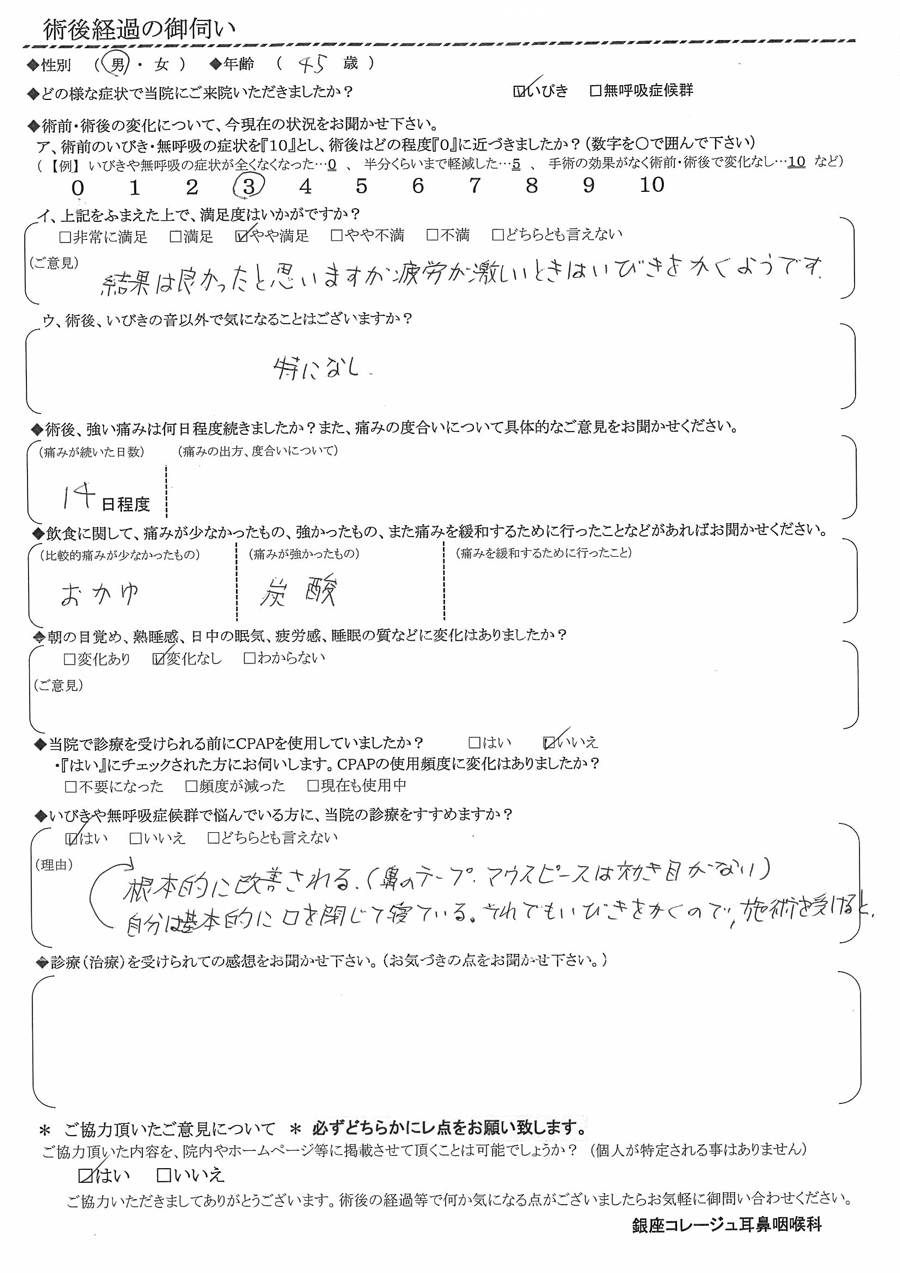 術後経過の御伺い
◆性別 （ 男 ・ 女 ） ◆年齢 （ 45 歳 ）
◆どの様な症状で当院にご来院いただきましたか？ ☑いびき □無呼吸症候群
◆術前・術後の変化について、今現在の状況をお聞かせ下さい。
ア、術前のいびき・無呼吸の症状を『10』とし、術後はどの程度『0』に近づきましたか？（数字を〇で囲んで下さい）
（ 【例】 いびきや無呼吸の症状が全くなくなった…0 、 半分くらいまで軽減した…5 、 手術の効果がなく術前・術後で変化なし…10 など）
0 1 2 ③ 4 5 6 7 8 9 10
イ、上記をふまえた上で、満足度はいかがですか？
□非常に満足 □満足 ☑やや満足 □やや不満 □不満 □どちらとも言えない
（ご意見）
結果は良かったと思いますが疲労が激しいときはいびきをかくようです.
ウ、術後、いびきの音以外で気になることはございますか？
特になし.
◆術後、強い痛みは何日程度続きましたか？また、痛みの度合いについて具体的なご意見をお聞かせください。
（痛みが続いた日数） （痛みの出方、度合いについて）
14 日程度
◆飲食に関して、痛みが少なかったもの、強かったもの、また痛みを緩和するために行ったことなどがあればお聞かせください。
（比較的痛みが少なかったもの） （痛みが強かったもの） （痛みを緩和するために行ったこと）
おかゆ 炭酸
◆朝の目覚め、熟睡感、日中の眠気、疲労感、睡眠の質などに変化はありましたか？
□変化あり ☑変化なし □わからない
（ご意見）
◆当院で診療を受けられる前にCPAPを使用していましたか？ □はい ☑いいえ
・『はい』にチェックされた方にお伺いします。CPAPの使用頻度に変化はありましたか？
□不要になった □頻度が減った □現在も使用中
◆いびきや無呼吸症候群で悩んでいる方に、当院の診療をすすめますか？
☑はい □いいえ □どちらとも言えない
（理由）
根本的に改善される.（鼻のテープ.マウスピースは効き目がない）
自分は基本的に口を閉じて寝ている。それでもいびきをかくので, 施術を受けると.
◆診療（治療）を受けられての感想をお聞かせ下さい。（お気づきの点をお聞かせ下さい。）
＊ ご協力頂いたご意見について ＊ 必ずどちらかにレ点をお願い致します。
ご協力頂いた内容を、院内やホームページ等に掲載させて頂くことは可能でしょうか？ （個人が特定される事はありません）
☑はい □いいえ
ご協力いただきましてありがとうございます。術後の経過等で何か気になる点がございましたらお気軽に御問い合わせください。
銀座コレージュ耳鼻咽喉科